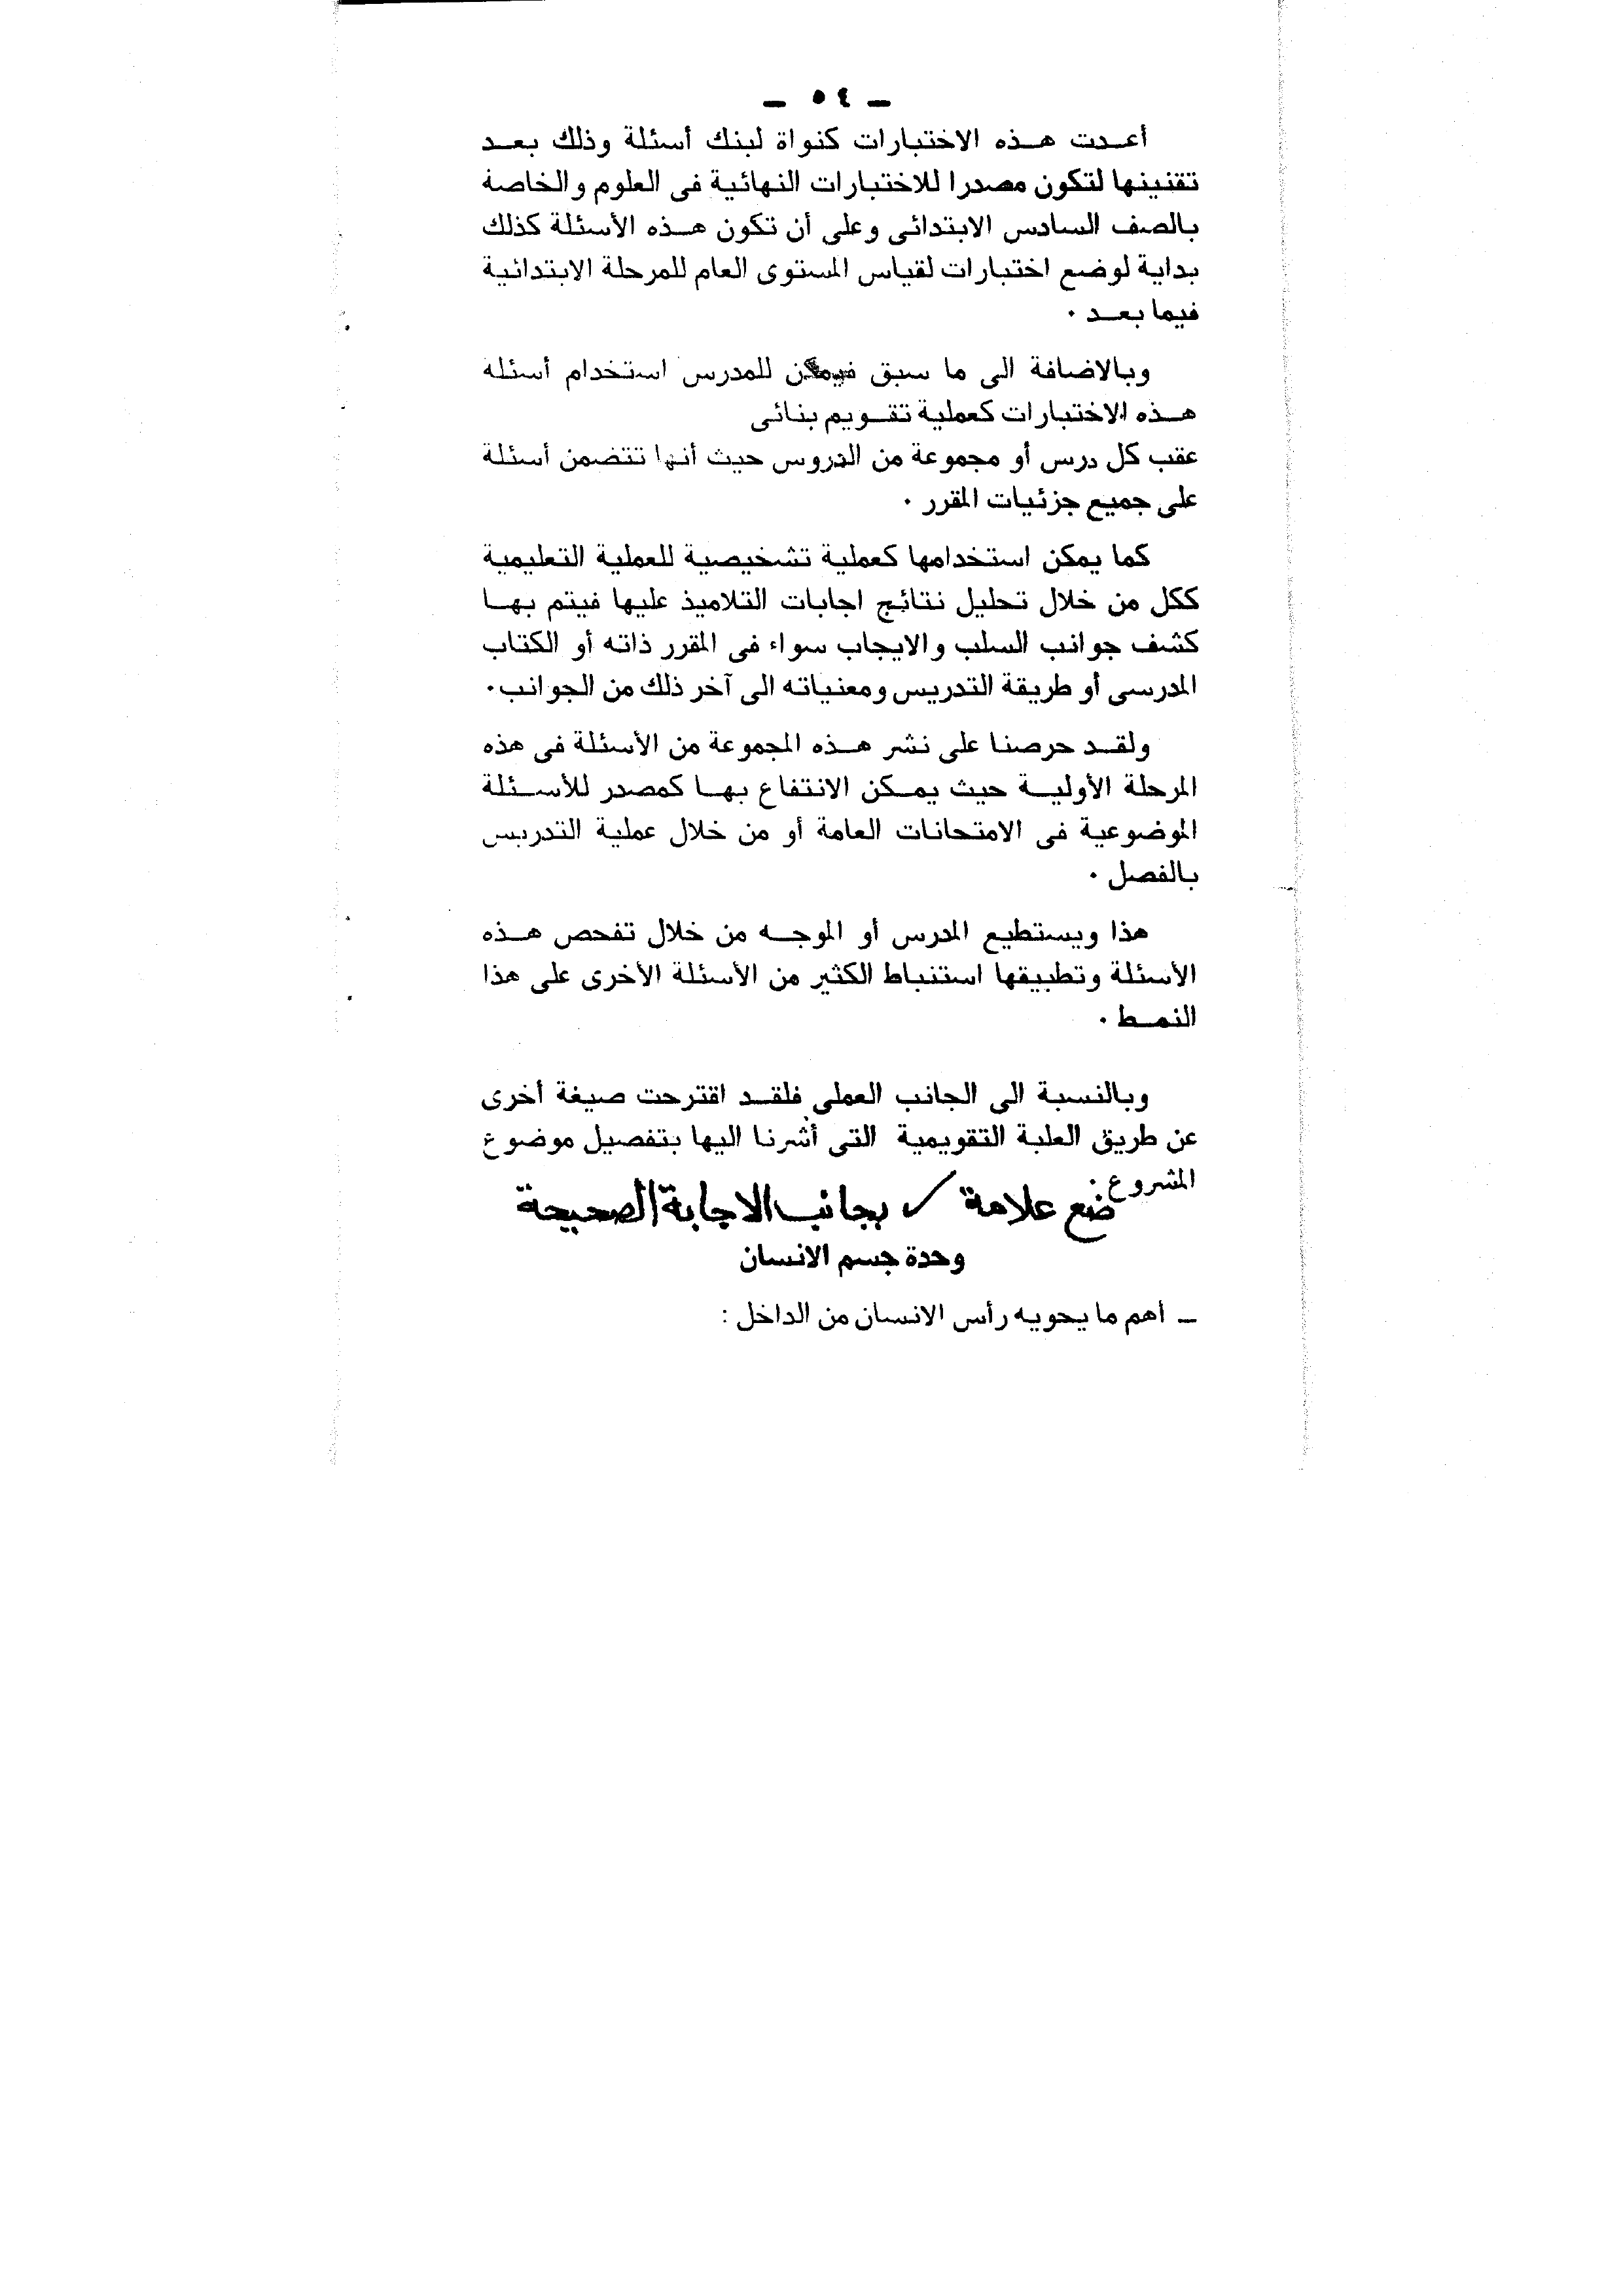 ـ ٥٤ ـ
أعـدت هـذه الاختبارات كنواة لبنك أسئلة وذلك بعـد
تقنينها لتكون مصدرا للاختبارات النهائية فى العلوم والخاصة
بالصف السادس الابتدائى وعلى أن تكون هـذه الأسئلة كذلك
بداية لوضع اختبارات لقياس المستوى العام للمرحلة الابتدائية
فيما بعـد ٠
وبالاضافة الى ما سبق فيمكن للمدرس استخدام أسئلة
هـذه الاختبارات كعملية تقـويم بنائى
عقب كل درس أو مجموعة من الدروس حيث أنها تتضمن أسئلة
على جميع جزئيات المقرر ٠
كما يمكن استخدامها كعملية تشخيصية للعملية التعليمية
ككل من خلال تحليل نتائج اجابات التلاميذ عليها فيتم بهـا
كشف جوانب السلب والايجاب سواء فى المقرر ذاته أو الكتاب
المدرسى أو طريقة التدريس ومعنياته الى آخر ذلك من الجوانب٠
ولقـد حرصنا على نشر هـذه المجموعة من الأسئلة فى هذه
المرحلة الأوليـة حيث يمـكن الانتفاع بهـا كمصدر للأسـئلة
الموضوعية فى الامتحانات العامة أو من خلال عملية التدريس
بالفصل ٠
هذا ويستطيع المدرس أو الموجـه من خلال تفحص هـذه
الأسئلة وتطبيقها استنباط الكثير من الأسئلة الأخرى على هذا
النمـط ٠
وبالنسبة الى الجانب العملى فلقـد اقترحت صيغة أخرى
عن طريق العلبة التقويمية التى أشرنا اليها بتفصيل موضوع
المشروع ٠
ضع علامة ✓ بجانب الاجابة الصحيحة
وحدة جسم الانسان
ـ أهم ما يحويه رأس الانسان من الداخل :